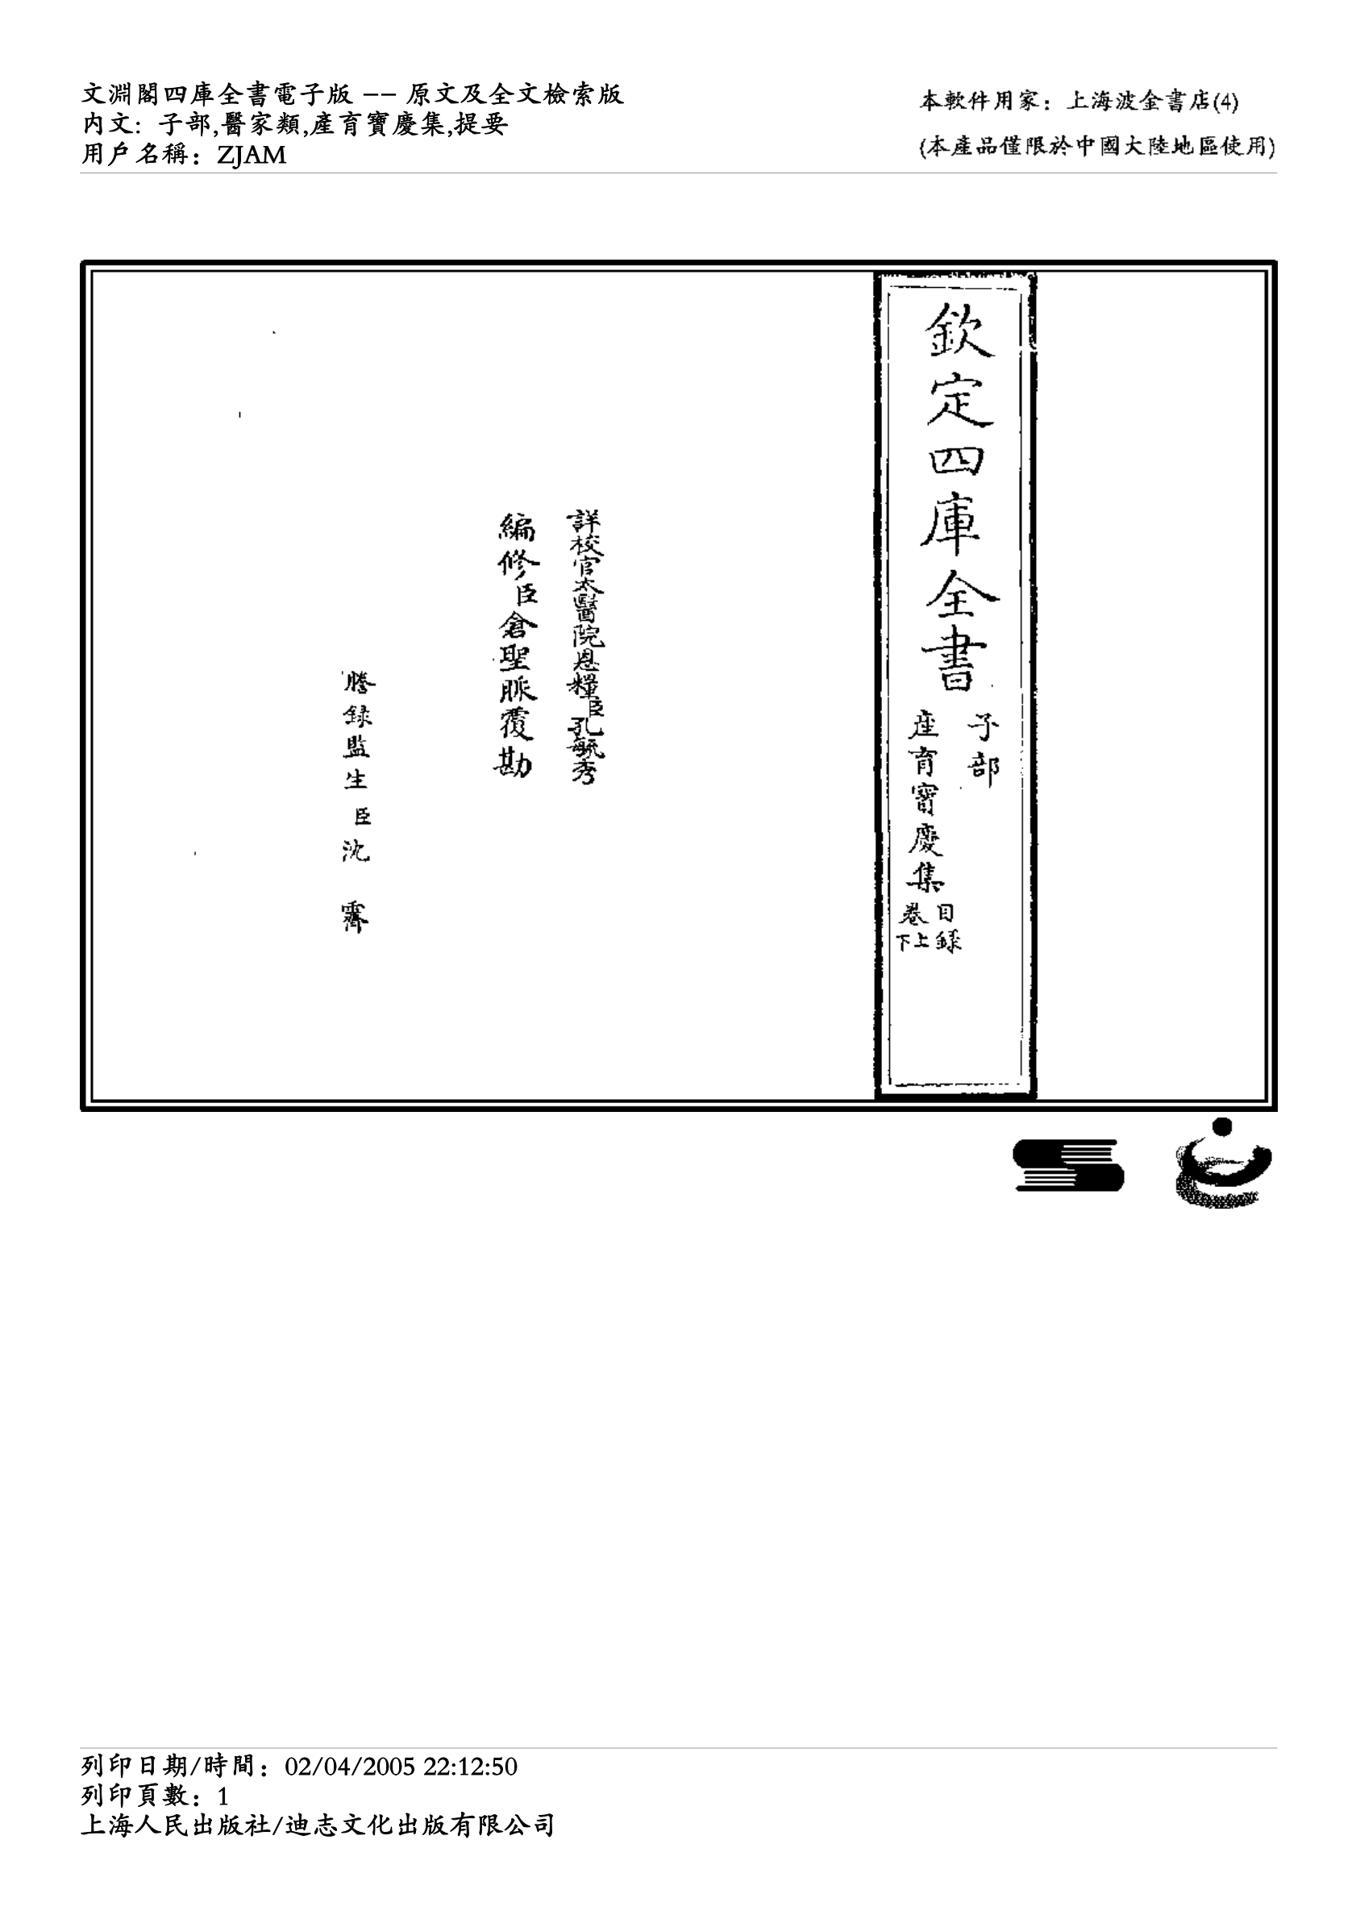 文淵閣四庫全書電子版 -- 原文及全文檢索版
內文: 子部,醫家類,產育寶慶集,提要
用戶名稱: ZJAM
本軟件用家: 上海波金書店(4)
(本產品僅限於中國大陸地區使用)
欽定四庫全書
子部
產育寶慶集
目錄
卷上
下
詳校官太醫院恩糧臣孔毓秀
編修臣倉聖脈覆勘
謄錄監生臣沈 霽
列印日期/時間: 02/04/2005 22:12:50
列印頁數: 1
上海人民出版社/迪志文化出版有限公司